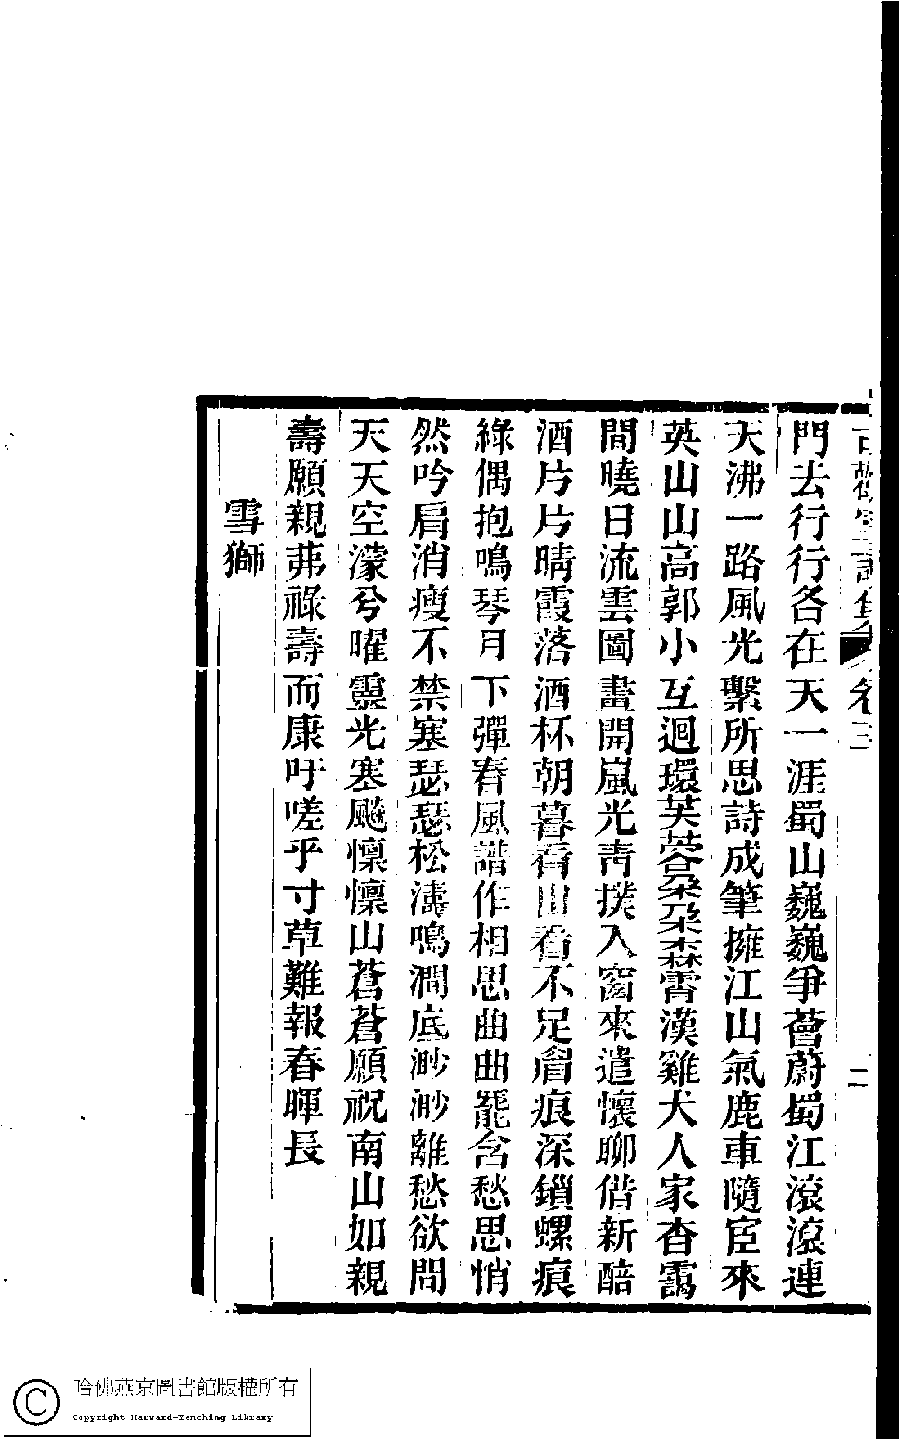 室詩集 卷三 二
門去行行各在天一涯蜀山巍巍爭薈蔚蜀江滾滾連
天沸一路風光繫所思詩成筆擁江山氣鹿車隨宦來
英山山高郭小互迴環芙蓉朶朶森霄漢雞犬人家杳靄
間曉日流雲圖畫開嵐光靑撲入窗來遣懷聊偕新醅
酒片片晴霞落酒杯朝暮看山看不足眉痕深鎖螺痕
綠偶抱鳴琴月下彈春風譜作相思曲曲罷含愁思悄
然吟肩消瘦不禁塞瑟瑟松濤鳴澗底渺渺離愁欲問
天天空濛兮曜靈光塞飈懍懍山蒼蒼願祝南山如親
壽願親茀祿壽而康吁嗟乎寸草難報春暉長
雪獅
哈佛燕京圖書館版權所有
Copyright Harvard-Yenching Library